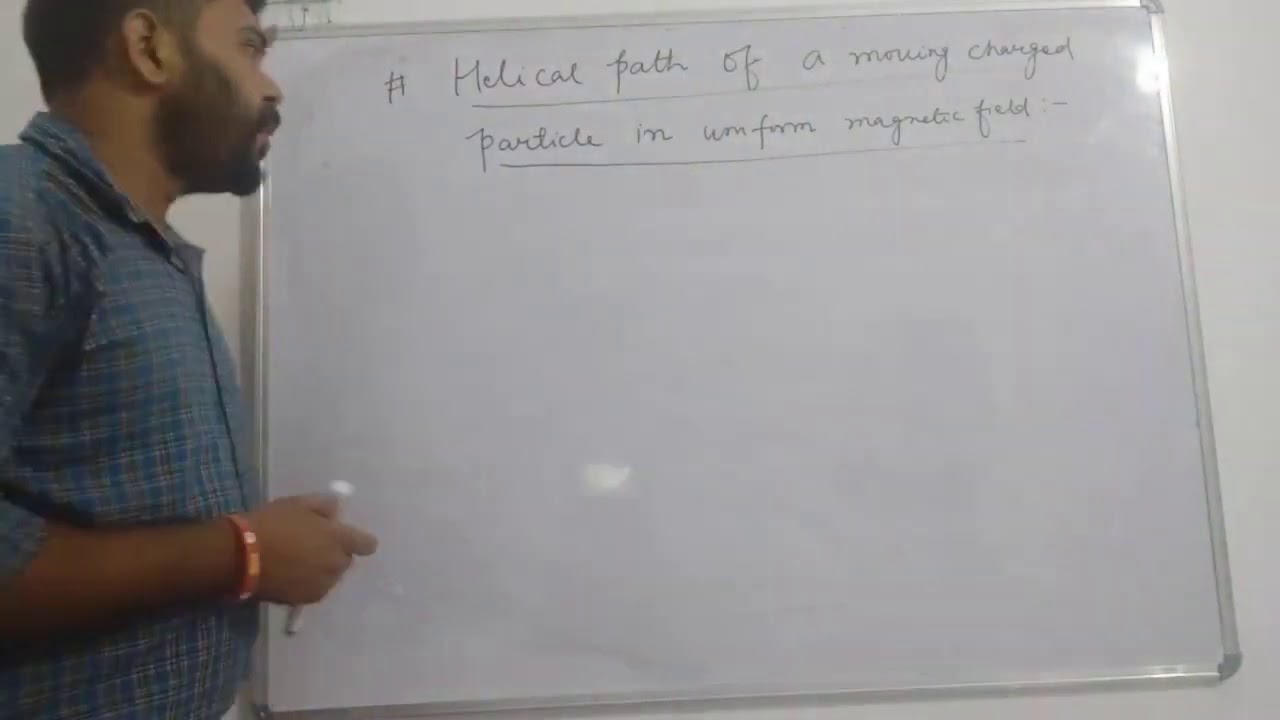 # Helical path of a moving charged
particle in uniform magnetic field :-